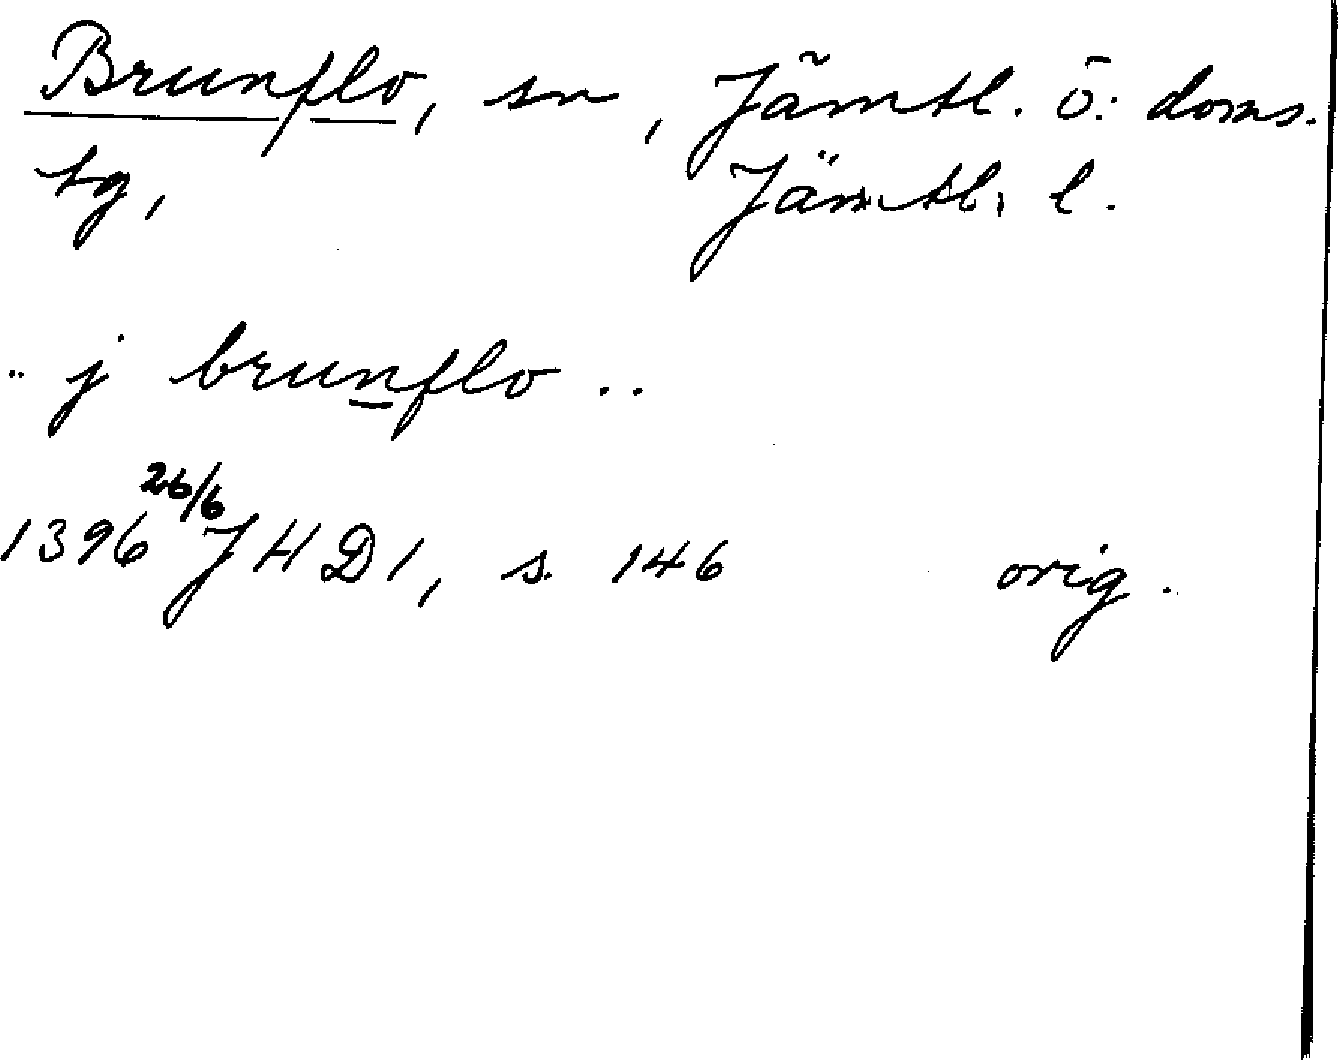 Brunflo, sn, Jämtl. ö: doms.
tg, Jämtl. l.
.. j brunflo ..
1396 26/6 JHD1, s. 146 orig.